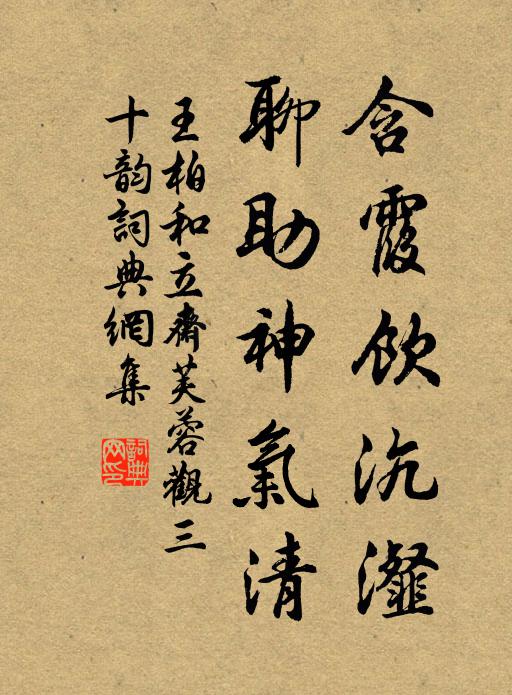 含霞飲沆瀣
聊助神氣清
王柏和立齋芙蓉觀三
十韵詞典網集
詞典
网印